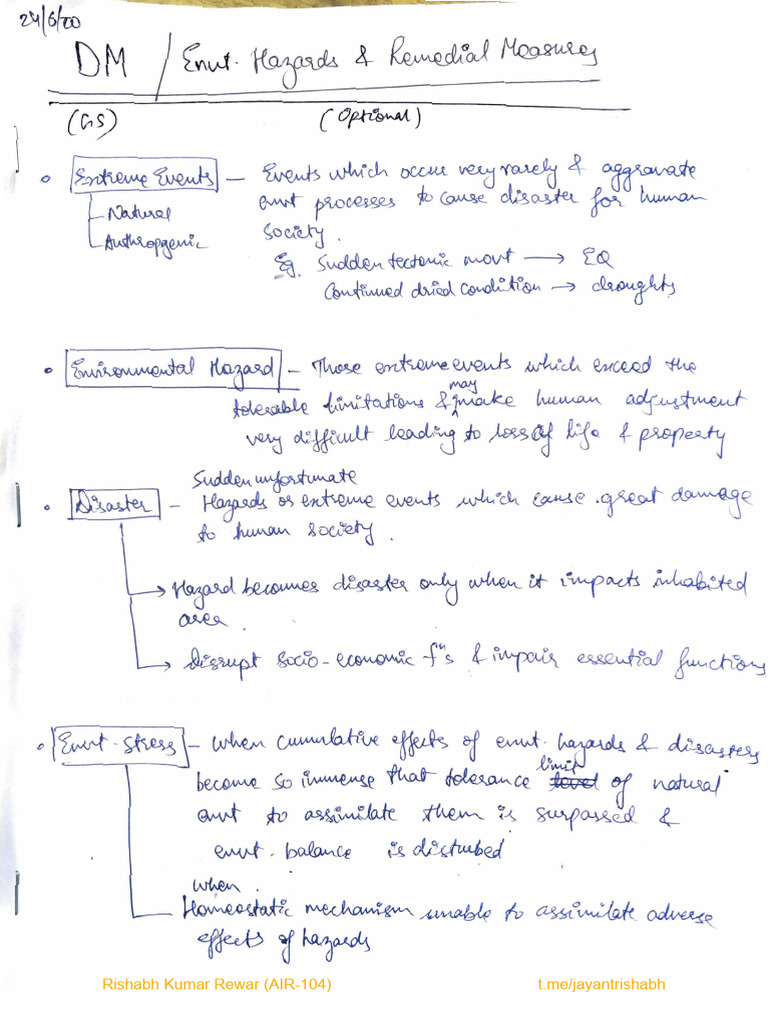 24/6/20
DM / Envt. Hazards & Remedial Measures
(GS) (Optional)
Extreme Events — Events which occur very rarely & aggravate
Natural
envt processes to cause disaster for human
Anthropgenic
society.
Eg. Sudden tectonic movt → EQ
Continued dried condition → droughts
Environmental Hazard — Those extreme events which exceed the
tolerable limitations & may make human adjustment
very difficult leading to loss of life & property
Sudden unfortunate
Disaster — Hazards or extreme events which cause great damage
to human society.
→ Hazard becomes disaster only when it impacts inhabited
area.
→ Disrupt socio-economic fⁿs & impair essential functions
Envt. Stress — when cumulative effects of envt. hazards & disasters
become so immense that tolerance limit of natural
envt to assimilate them is surpassed &
envt. balance is disturbed
when
Homeostatic mechanism unable to assimilate adverse
effects of hazards
Rishabh Kumar Rewar (AIR-104) t.me/jayantrishabh